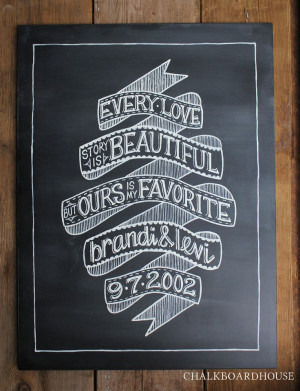 EVERY·LOVE
STORY IS BEAUTIFUL
BUT OURS IS MY FAVORITE
brandi & levi
9·7·2002
CHALKBOARDHOUSE